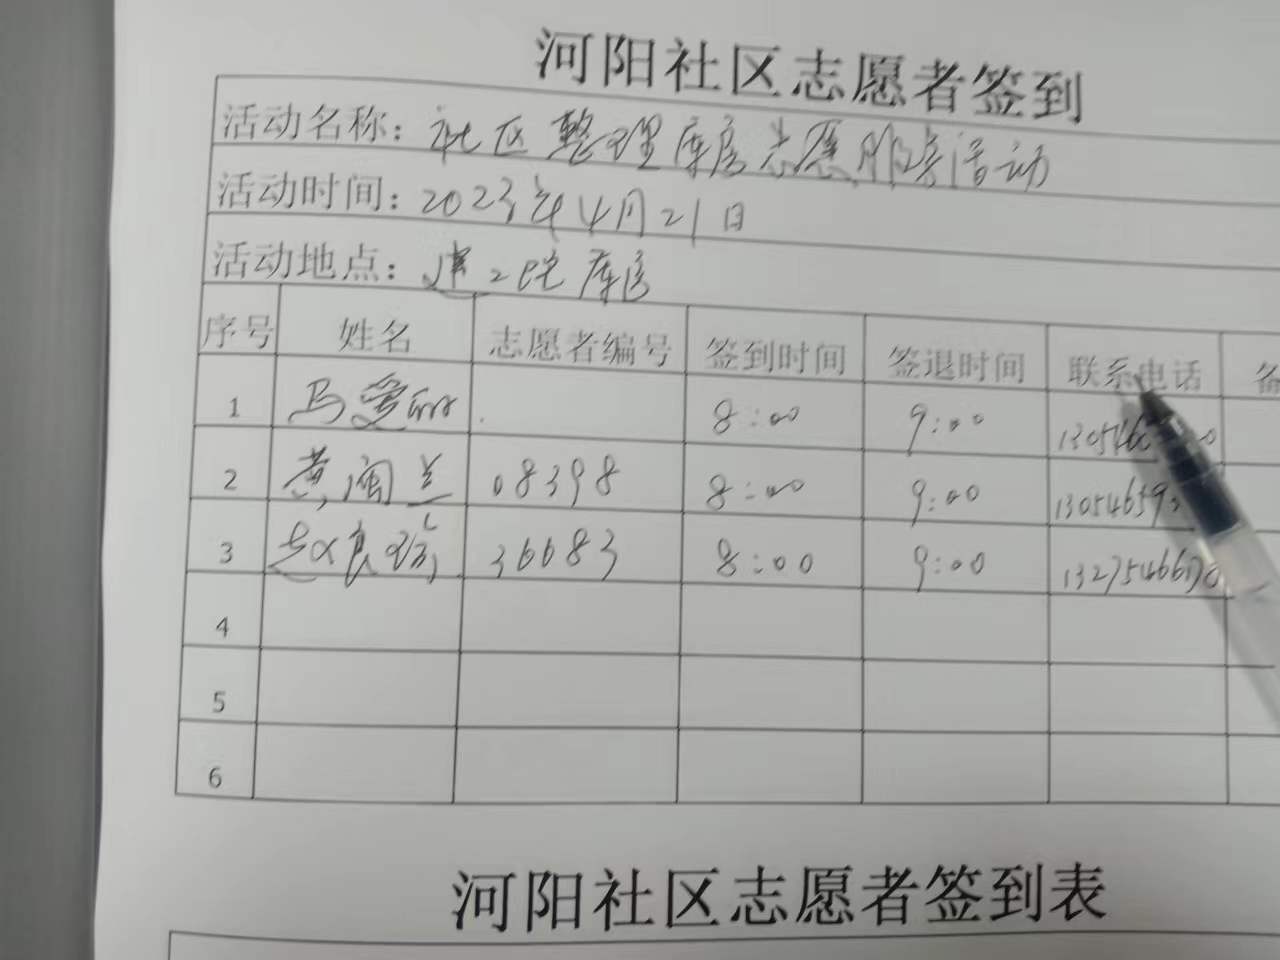 河阳社区志愿者签到
活动名称：社区整理库房志愿服务活动
活动时间：2023年4月21日
活动地点：建二院库房
序号 姓名 志愿者编号 签到时间 签退时间 联系电话 备
1 马爱丽 8:00 9:00
2 黄闽兰 08398 8:00 9:00
3 赵良琼 36683 8:00 9:00
4
5
6
河阳社区志愿者签到表